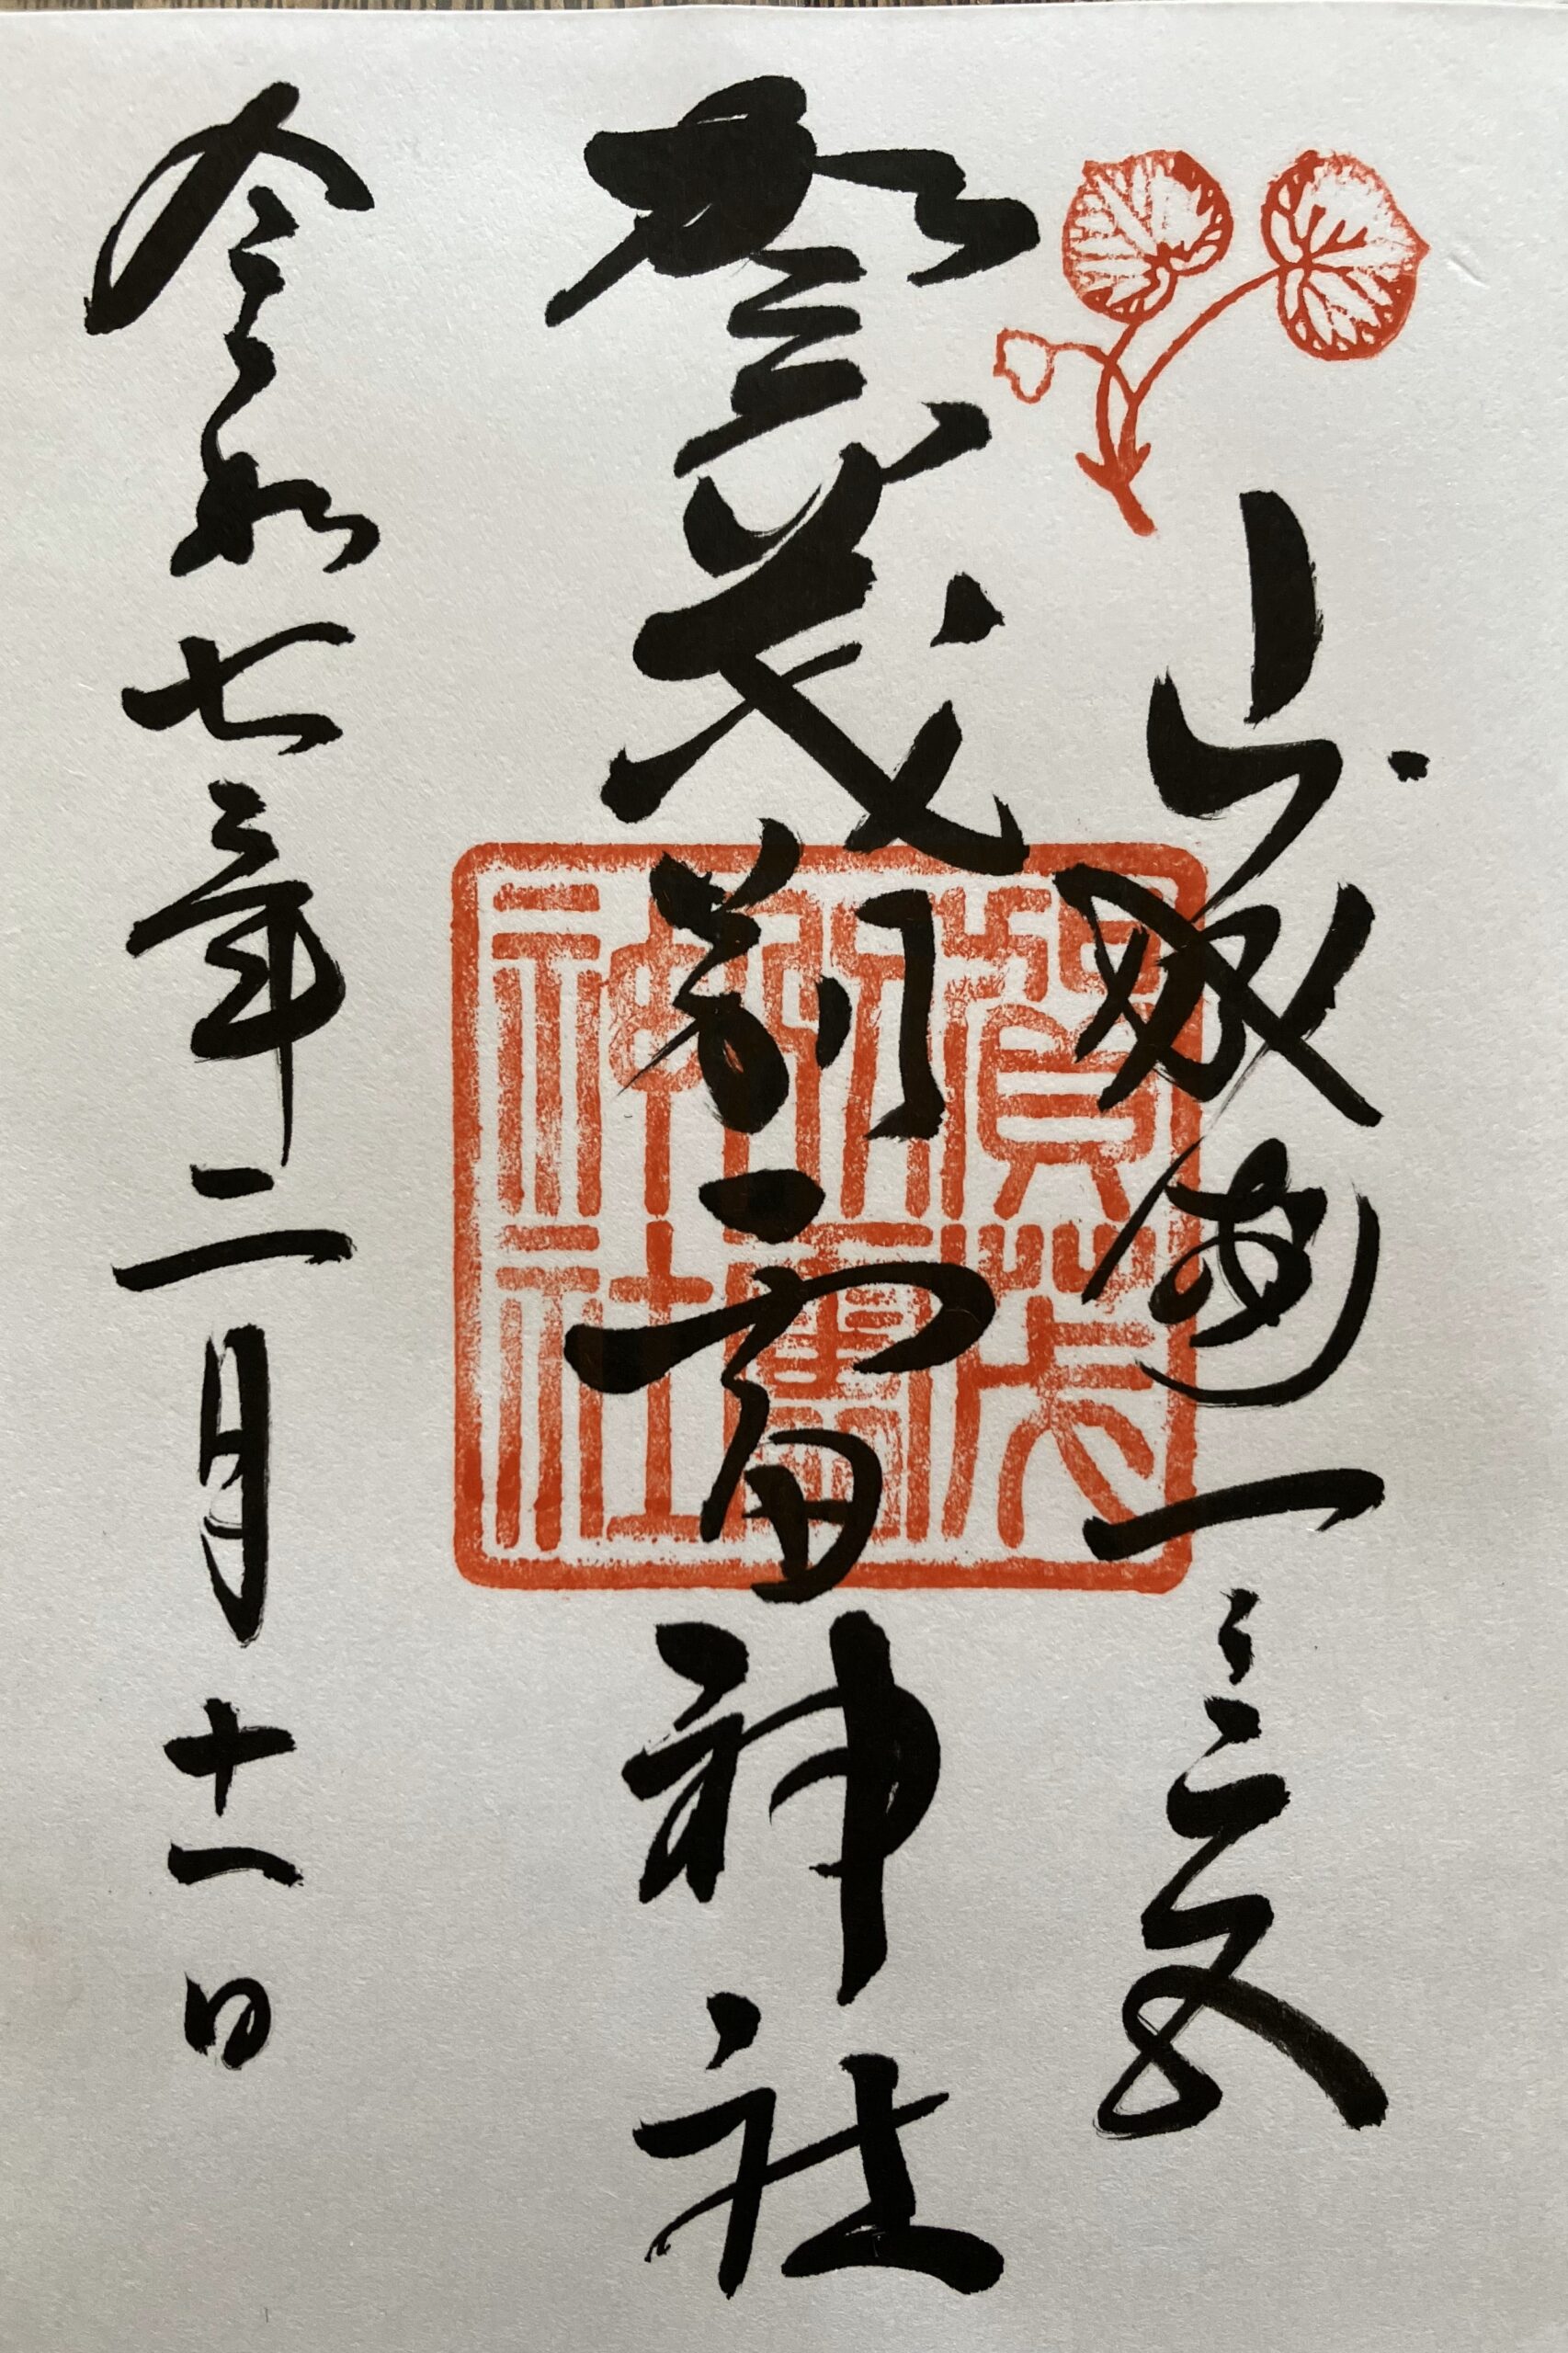 山城國一之宮
賀茂別雷神社
令和七年二月十一日
賀茂
別雷
神社